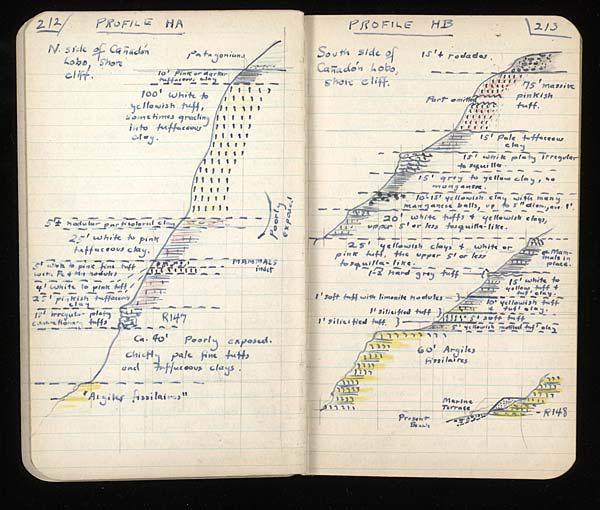 212
PROFILE HA
N. side of Cañadón
Lobo, shore
cliff.
Patagonians
10' Pink or darker
tuffaceous clay
100' White to
yellowish tuff,
sometimes grading
into tuffaceous
clay.
Poorly
exposed
5'± nodular particolored clay
25' White to pink
tuffaceous clay.
MAMMALS
5' White to pink fine tuff
with Fe & Mn nodules
4' White to pink tuff
25' pinkish tuffaceous
clay
15' irregular platy
concretionary tuffs
R147
Ca. 40' Poorly exposed.
Chiefly pale fine tuffs
and tuffaceous clays.
"Argiles fissilaires"
PROFILE HB
213
South side of
Cañadón Lobo,
shore cliff.
15'+ rodados
75' massive
pinkish
tuff.
Part omitted
15' Pale tuffaceous
clay
15' white platy irregular
tosquilla
15' grey to yellow clay, no
manganese.
10-15' yellowish clay with many
manganese balls, up to 5" diam, av. 1".
20' white tuffs & yellowish clays,
upper 5' or less tosquilla-like.
25' yellowish clays & white or
pink tuff, the upper 5' or less
tosquilla-like.
Mammals
in
place.
1-2' hard grey tuff
15' white to
yellow tuff &
tuf. clay.
1' soft tuff with limonite nodules
10' yellowish tuff
tuf. clay.
1' silicified tuff
5' soft tuff
1' silicified tuff
5' yellowish mottled tuf. clay
60' Argiles
fissilaires
Marine
Terrace
R148
Present
Beach